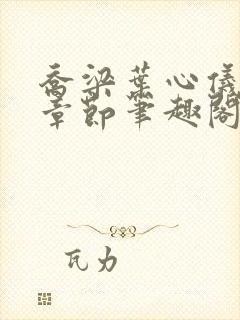 乔梁叶心仪
章节笔趣阁
瓦力